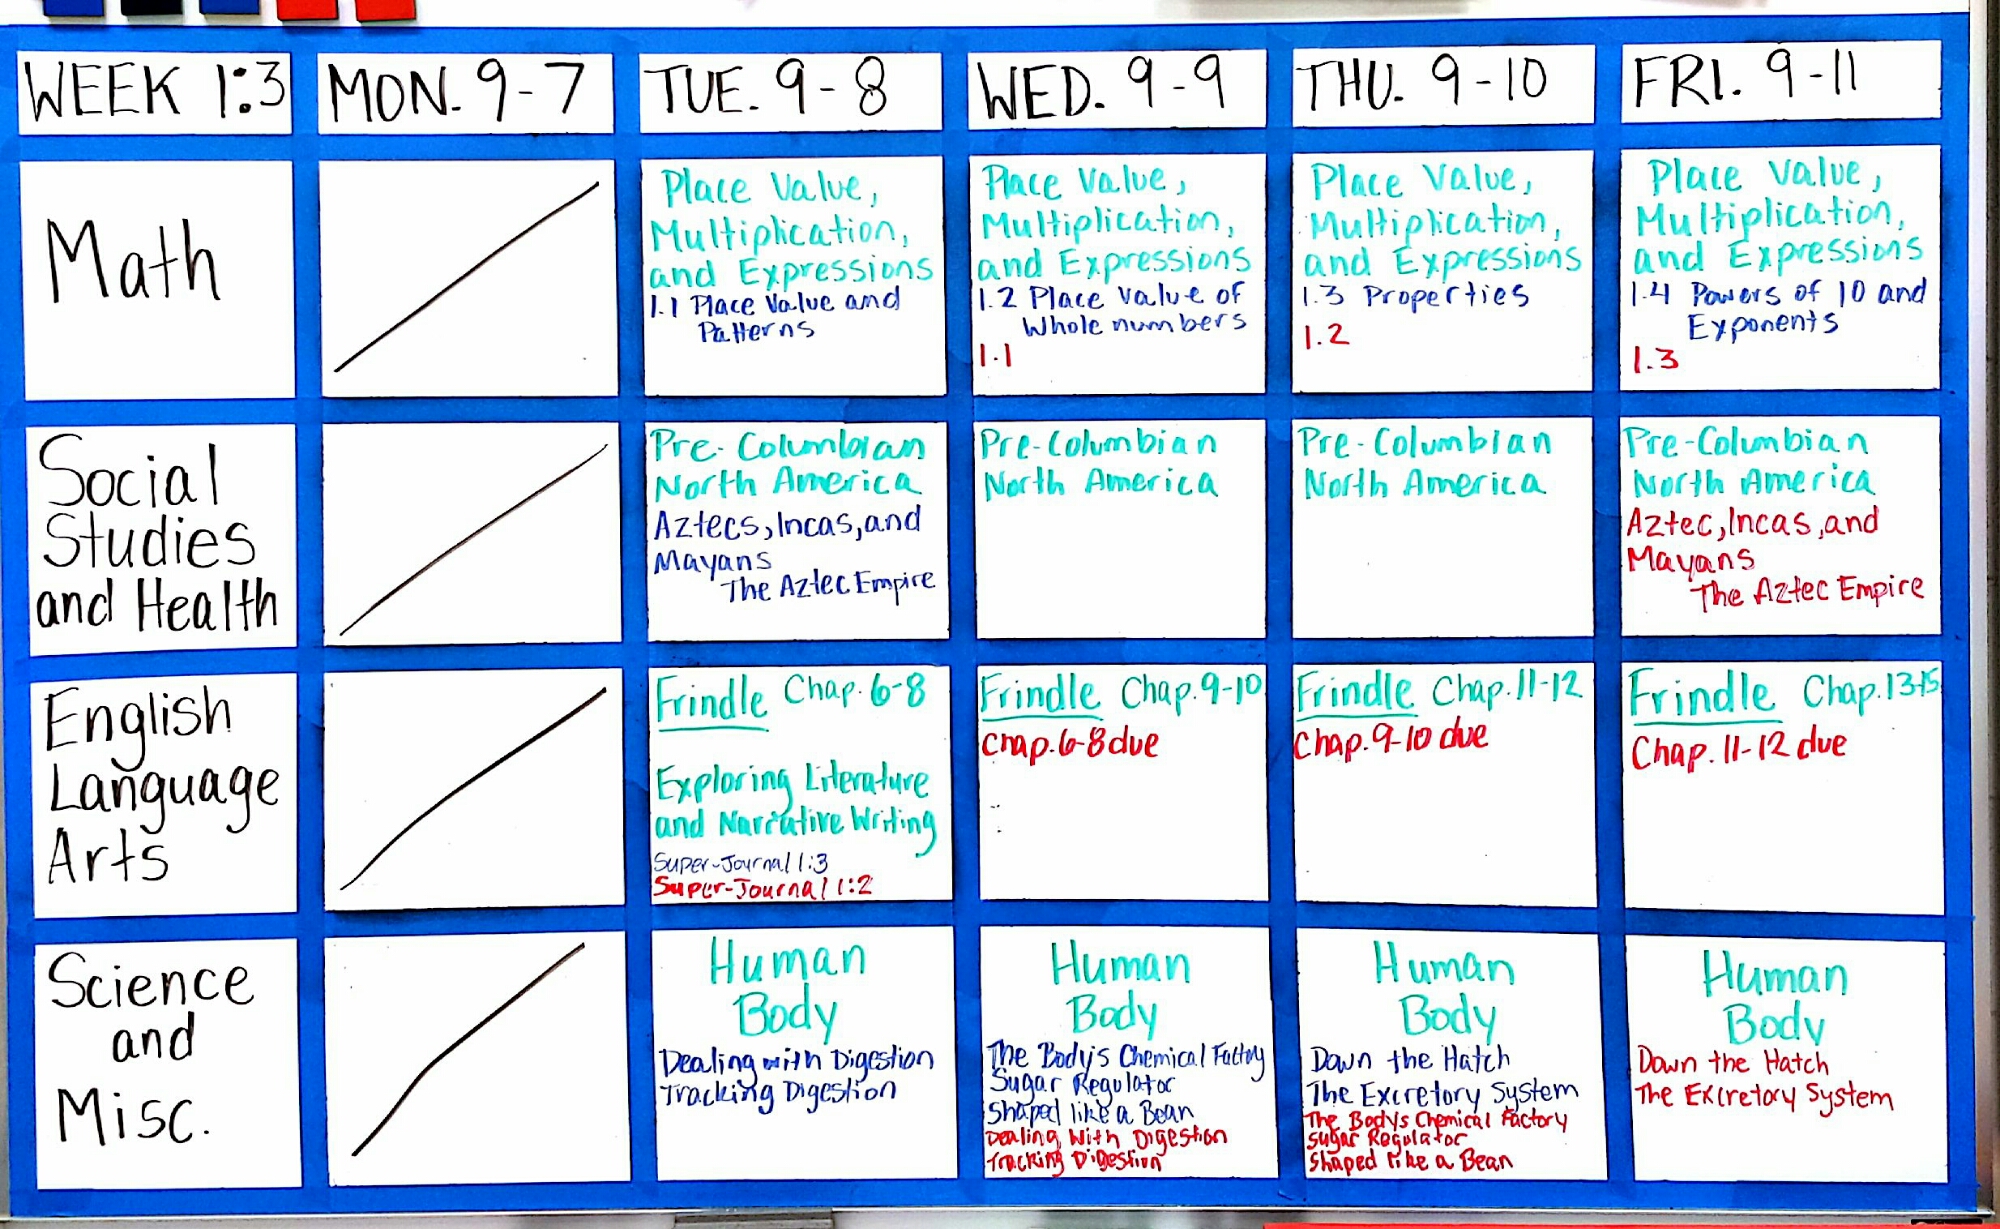 WEEK 1:3
MON. 9-7
TUE. 9-8
WED. 9-9
THU. 9-10
FRI. 9-11
Math
Place Value,
Multiplication,
and Expressions
1.1 Place Value and
Patterns
Place Value,
Multiplication,
and Expressions
1.2 Place Value of
Whole numbers
1.1
Place Value,
Multiplication,
and Expressions
1.3 Properties
1.2
Place Value,
Multiplication,
and Expressions
1.4 Powers of 10 and
Exponents
1.3
Social
Studies
and Health
Pre-Columbian
North America
Aztecs, Incas, and
Mayans
The Aztec Empire
Pre-Columbian
North America
Pre-Columbian
North America
Pre-Columbian
North America
Aztec, Incas, and
Mayans
The Aztec Empire
English
Language
Arts
Frindle Chap. 6-8
Exploring Literature
and Narrative Writing
Super-Journal 1:3
Super-Journal 1:2
Frindle Chap. 9-10
Chap. 6-8 due
Frindle Chap. 11-12
Chap. 9-10 due
Frindle Chap. 13-15
Chap. 11-12 due
Science
and
Misc.
Human
Body
Dealing with Digestion
Tracking Digestion
Human
Body
The Body's Chemical Factory
Sugar Regulator
Shaped like a Bean
Dealing With Digestion
Tracking Digestion
Human
Body
Down the Hatch
The Excretory System
The Bodys Chemical Factory
Sugar Regulator
Shaped like a Bean
Human
Body
Down the Hatch
The Excretory System